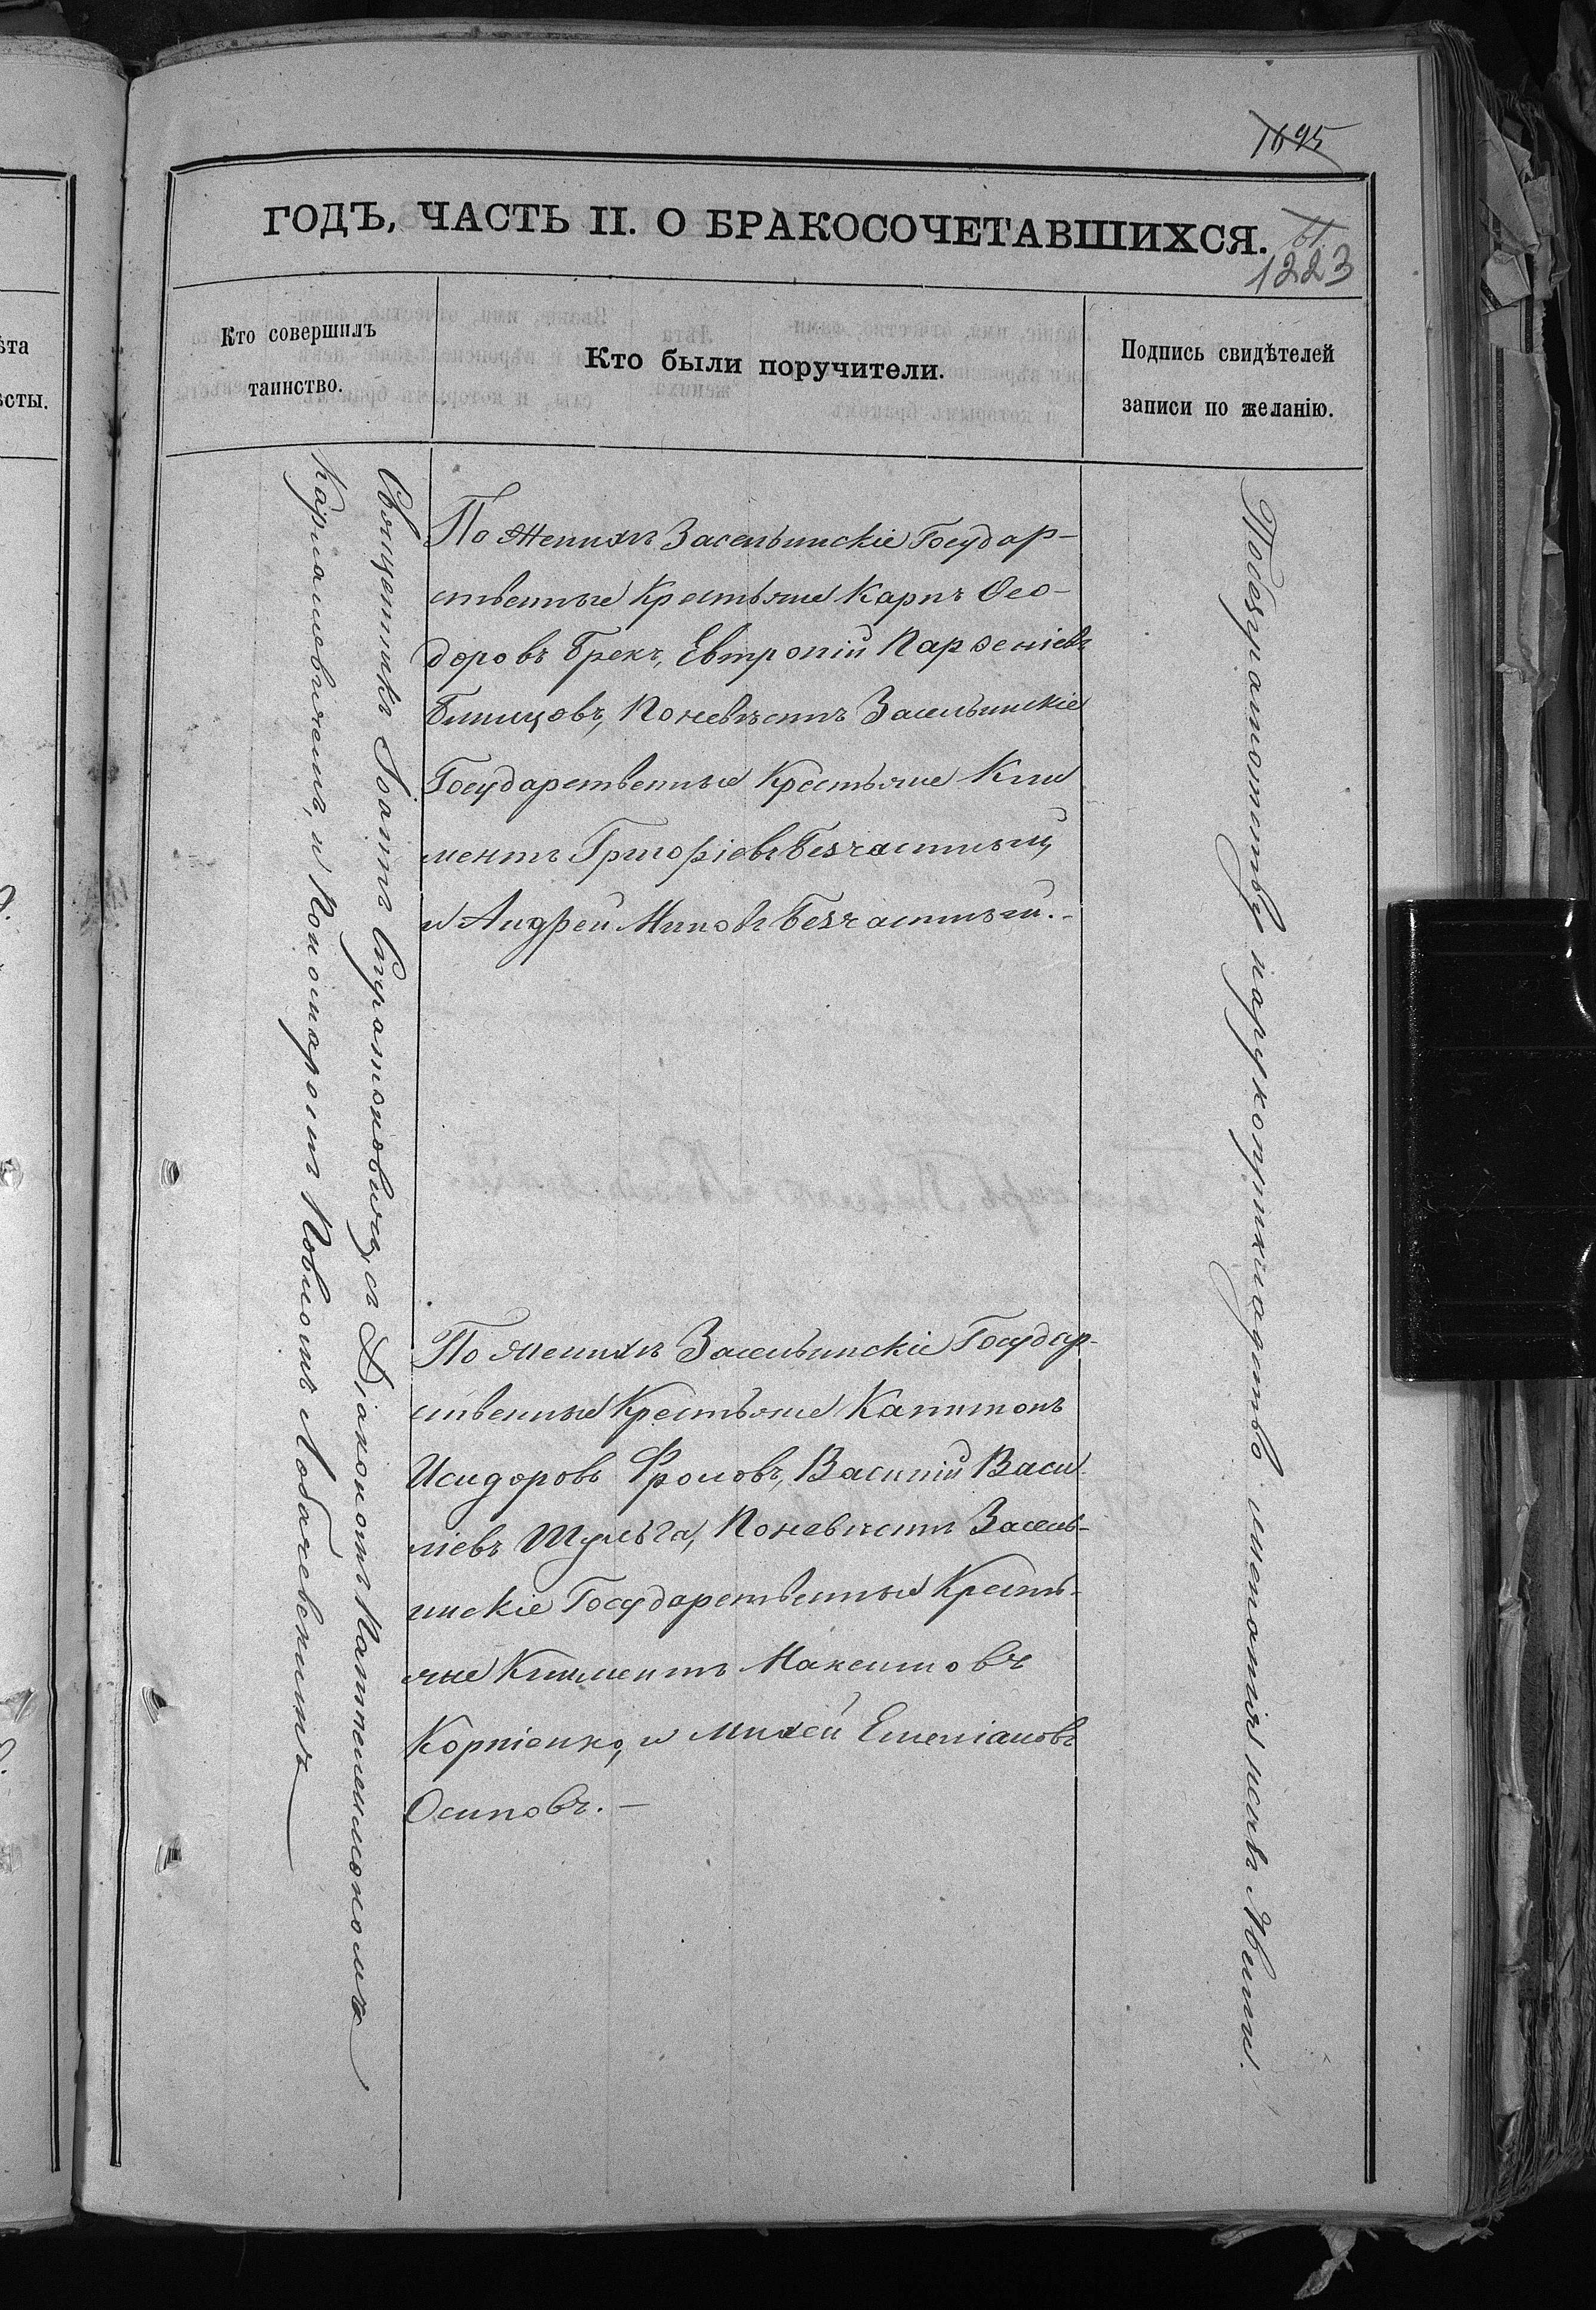 1695
ГОДЪ, ЧАСТЬ II. О БРАКОСОЧЕТАВШИХСЯ.
61.
1223
ѣта
ѣсты.
Кто совершилъ
таинство.
Кто были поручители.
Подпись свидѣтелей
записи по желанію.
Священникъ Іоаннъ Стратоновичъ, съ Діакономъ Пантелеимономъ
и Пономаремъ Павломъ Лобачевскимъ
По Женихѣ Засельскіе Государ-
ственные Крестьяне Карпъ Ѳео-
доровъ Грекъ, Евтропій Парѳеніевъ
По невѣстѣ Засельскіе
Государственные Крестьяне Кли
ментъ Григоріевъ Безчастный,
и Андрей Миновъ Безчастный.-
По женихѣ Засельскіе Государ-
ственные Крестьяне Капитонъ
Исидоровъ Фроловъ, Василій Васи
ліевъ Шульга, По невѣстѣ Засель-
скіе Государственные Кресть-
яне Климентъ Максимовъ
Корніенко, и Михей Емеліановъ
Осиповъ.-